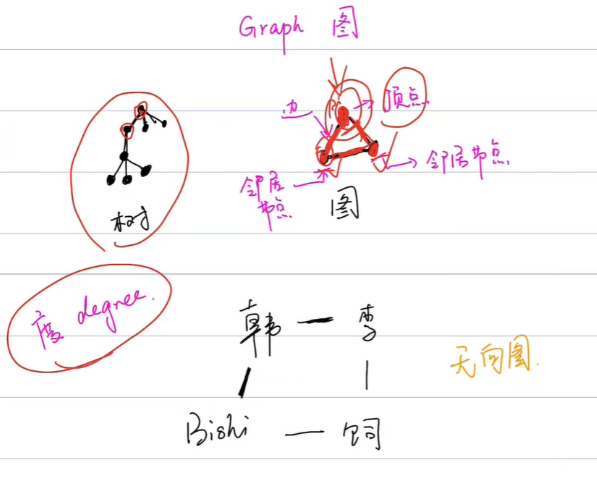 Graph 图
边
顶点
邻居节点
邻居
节点
树
图
度 degree.
韩 — 李
Bishi — 饲
无向图.